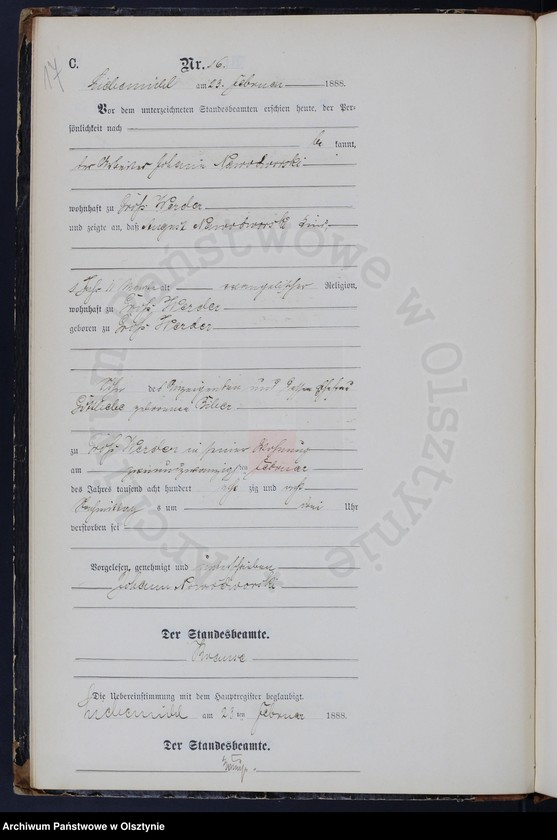 17
C. Nr. 16.
Liebemühl am 23. Februar 1888.
Vor dem unterzeichneten Standesbeamten erschien heute, der Per-
sönlichkeit nach
be kannt,
der Arbeiter Johann Nowodworski
wohnhaft zu Groß Werder
und zeigte an, daß August Nowodworski, Kind,
1 Jahr alt evangelischer Religion,
wohnhaft zu Groß Werder
geboren zu Groß Werder
Sohn des Anzeigenden und dessen Ehefrau
Gottliebe geborenen
zu Groß Werder in seiner Wohnung
am ten Februar
des Jahres tausend acht hundert acht zig und acht
Nachmittags um drei Uhr
verstorben sei
Vorgelesen, genehmigt und unterschrieben
Johann Nowodworski
Der Standesbeamte.
Die Uebereinstimmung mit dem Hauptregister beglaubigt.
Liebemühl am 23 ten Februar 1888.
Der Standesbeamte.
Archiwum Państwowe w Olsztynie
Archiwum Państwowe w Olsztynie